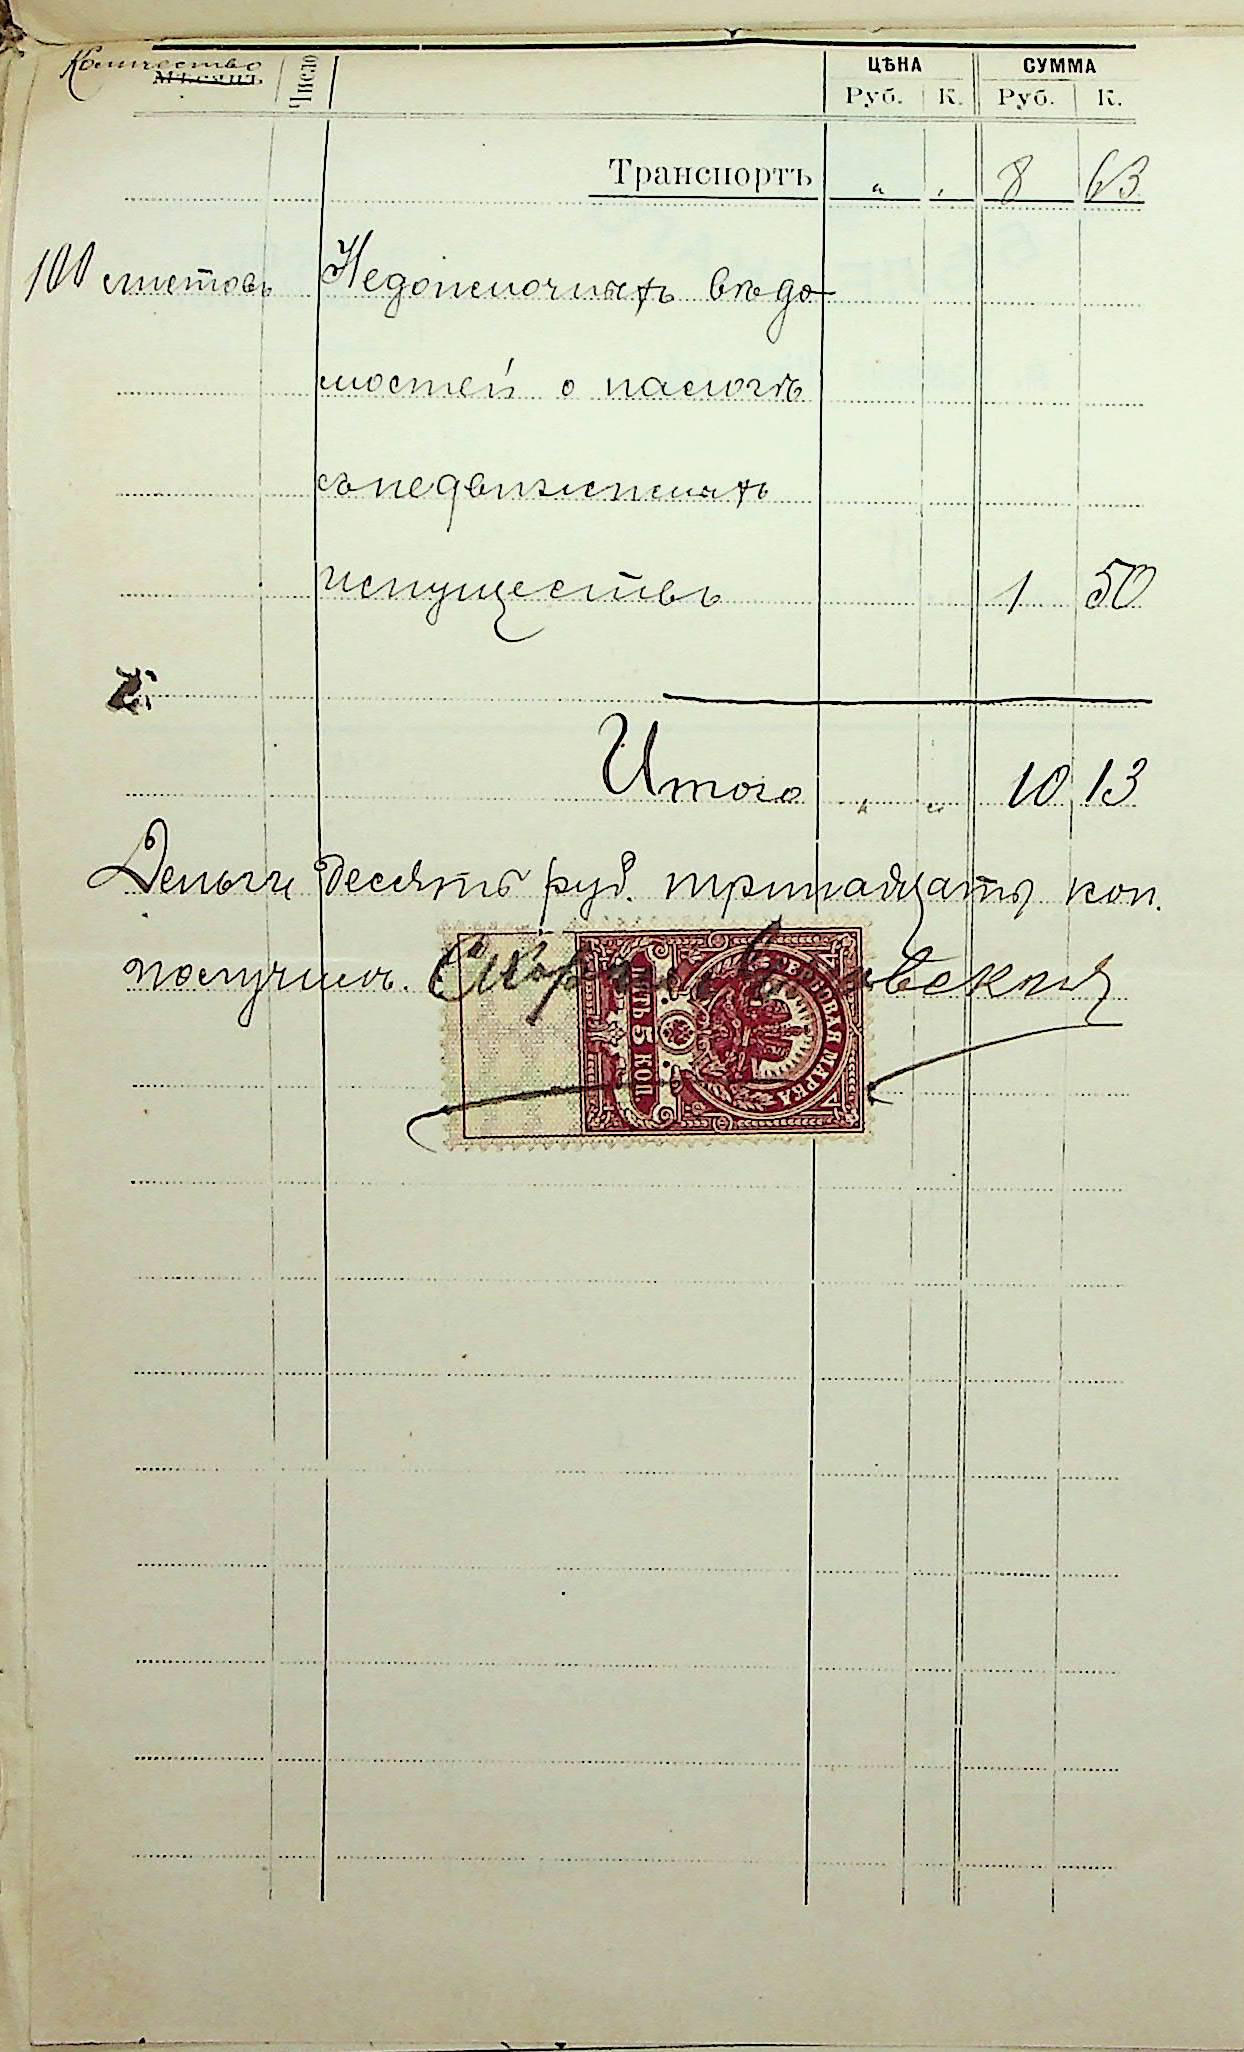 Количество
Мѣсяцъ
Число
ЦѢНА
СУММА
Руб. К. Руб. К.
Транспортъ " " 8 63
100 листовъ Недоимочныхъ вѣдо-
мостей о налогѣ
съ недвижимыхъ
имуществъ 1 50
Итого " " 10 13
Деньги десять руб. тринадцать коп.
получилъ.
ГЕРБОВАЯ МАРКА
ПЯТЬ 5 КОП.